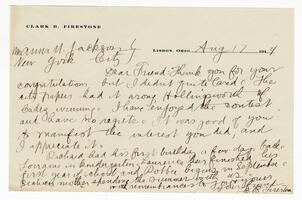 CLARK B. FIRESTONE
LISBON, OHIO, Aug 17 1914
Anna M Jackson
New York City
Dear Friend: Thank you for your
congratulations, but I didn't quite land. The
city papers had it wrong, Hollingsworth of
Cadiz winning. I have enjoyed the contest
and have no regrets. It was good of you
to manifest the interest you did, and
I appreciate it.
Richard had his first birthday a few days back.
Lorraine is Kindergarten, Laurence has finished his
first year of school and begins in September.
mother spending the summer with us.
with remembrances to you
Firestone